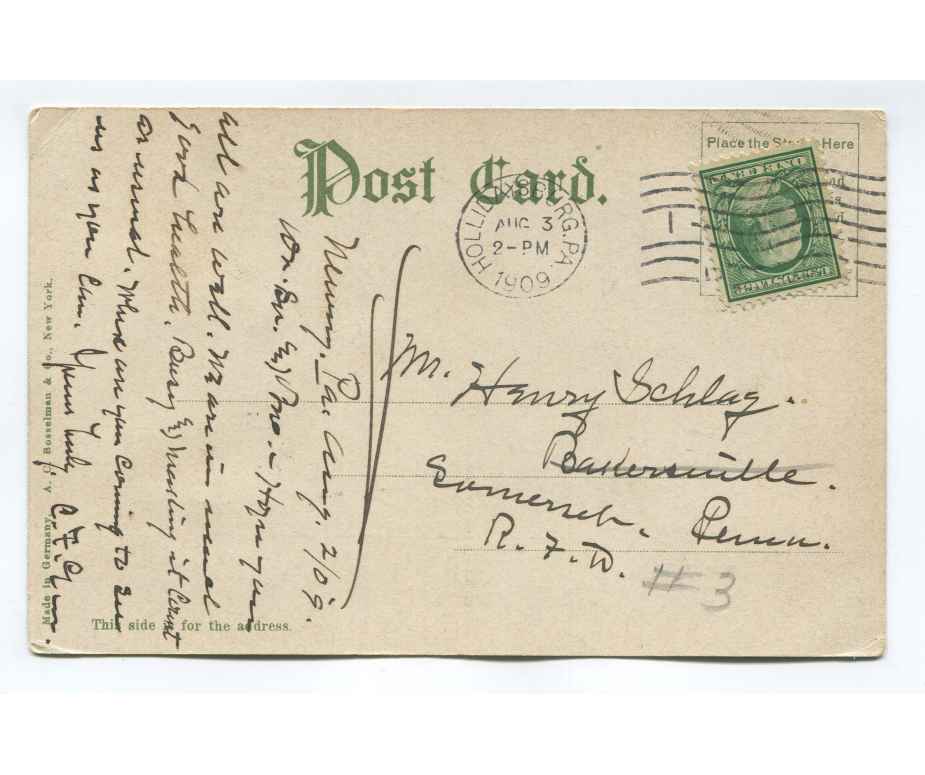 Post Card.
Place the Here
HOLLIDAYSBURG, PA.
AUG 3
2-PM
1909
1
Mr. Henry Schlag.
Bakersville.
Somerset. Penna.
R. F. D. #3
Pa. Aug. 2/09.
Dr. Sir. & Hope you
all are well. We are in usual
Good health. Busy
around. When are you coming to see
us as you can. Yours truly
This side is for the address.
Made in Germany. A. C. Bosselman & Co., New York.